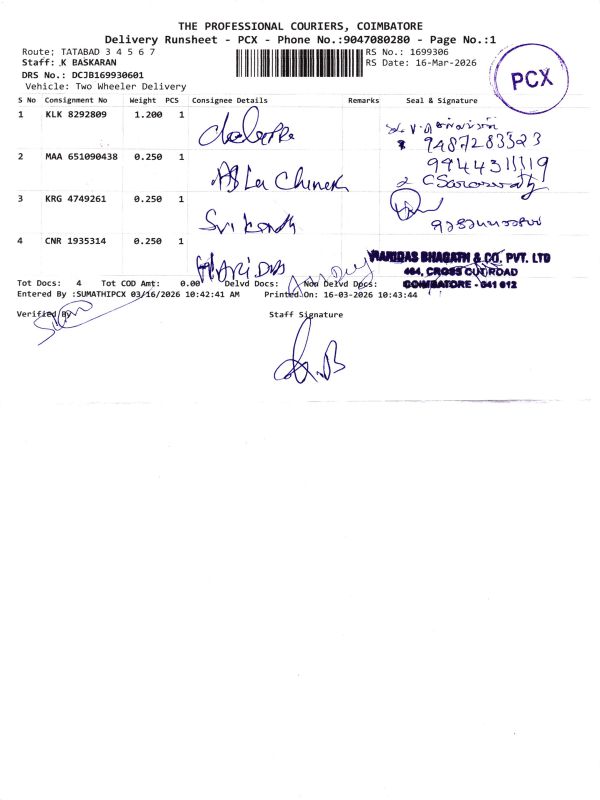 THE PROFESSIONAL COURIERS, COIMBATORE
Delivery Runsheet - PCX - Phone No.:9047080280 - Page No.:1
Route: TATABAD 3 4 5 6 7
RS No.: 1699306
Staff: .K BASKARAN
RS Date: 16-Mar-2026
DRS No.: DCJB169930601
Vehicle: Two Wheeler Delivery
PCX
S No Consignment No Weight PCS Consignee Details Remarks Seal & Signature
1 KLK 8292809 1.200 1
9487283323
2 MAA 651090438 0.250 1
9944311119
2 C Saraswathy
3 KRG 4749261 0.250 1 Srikanth
4 CNR 1935314 0.250 1 HARI DAS
HARIDAS BHAGATH & CO. PVT. LTD
464, CROSS CUT ROAD
COIMBATORE - 641 012
Tot Docs: 4 Tot COD Amt: 0.00 Delvd Docs: Non Delvd Docs:
Entered By :SUMATHIPCX 03/16/2026 10:42:41 AM Printed On: 16-03-2026 10:43:44
Verified By
Staff Signature